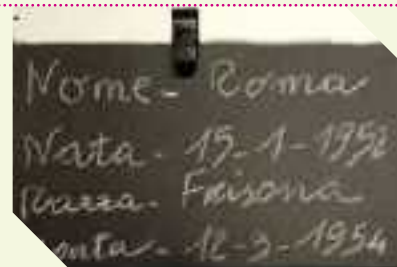 Nome - Roma
Nata - 15-1-1952
Razza - Frisona
Monta - 12-3-1954